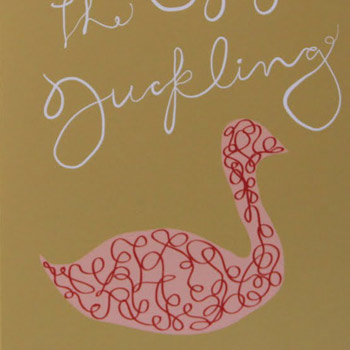 the
Duckling